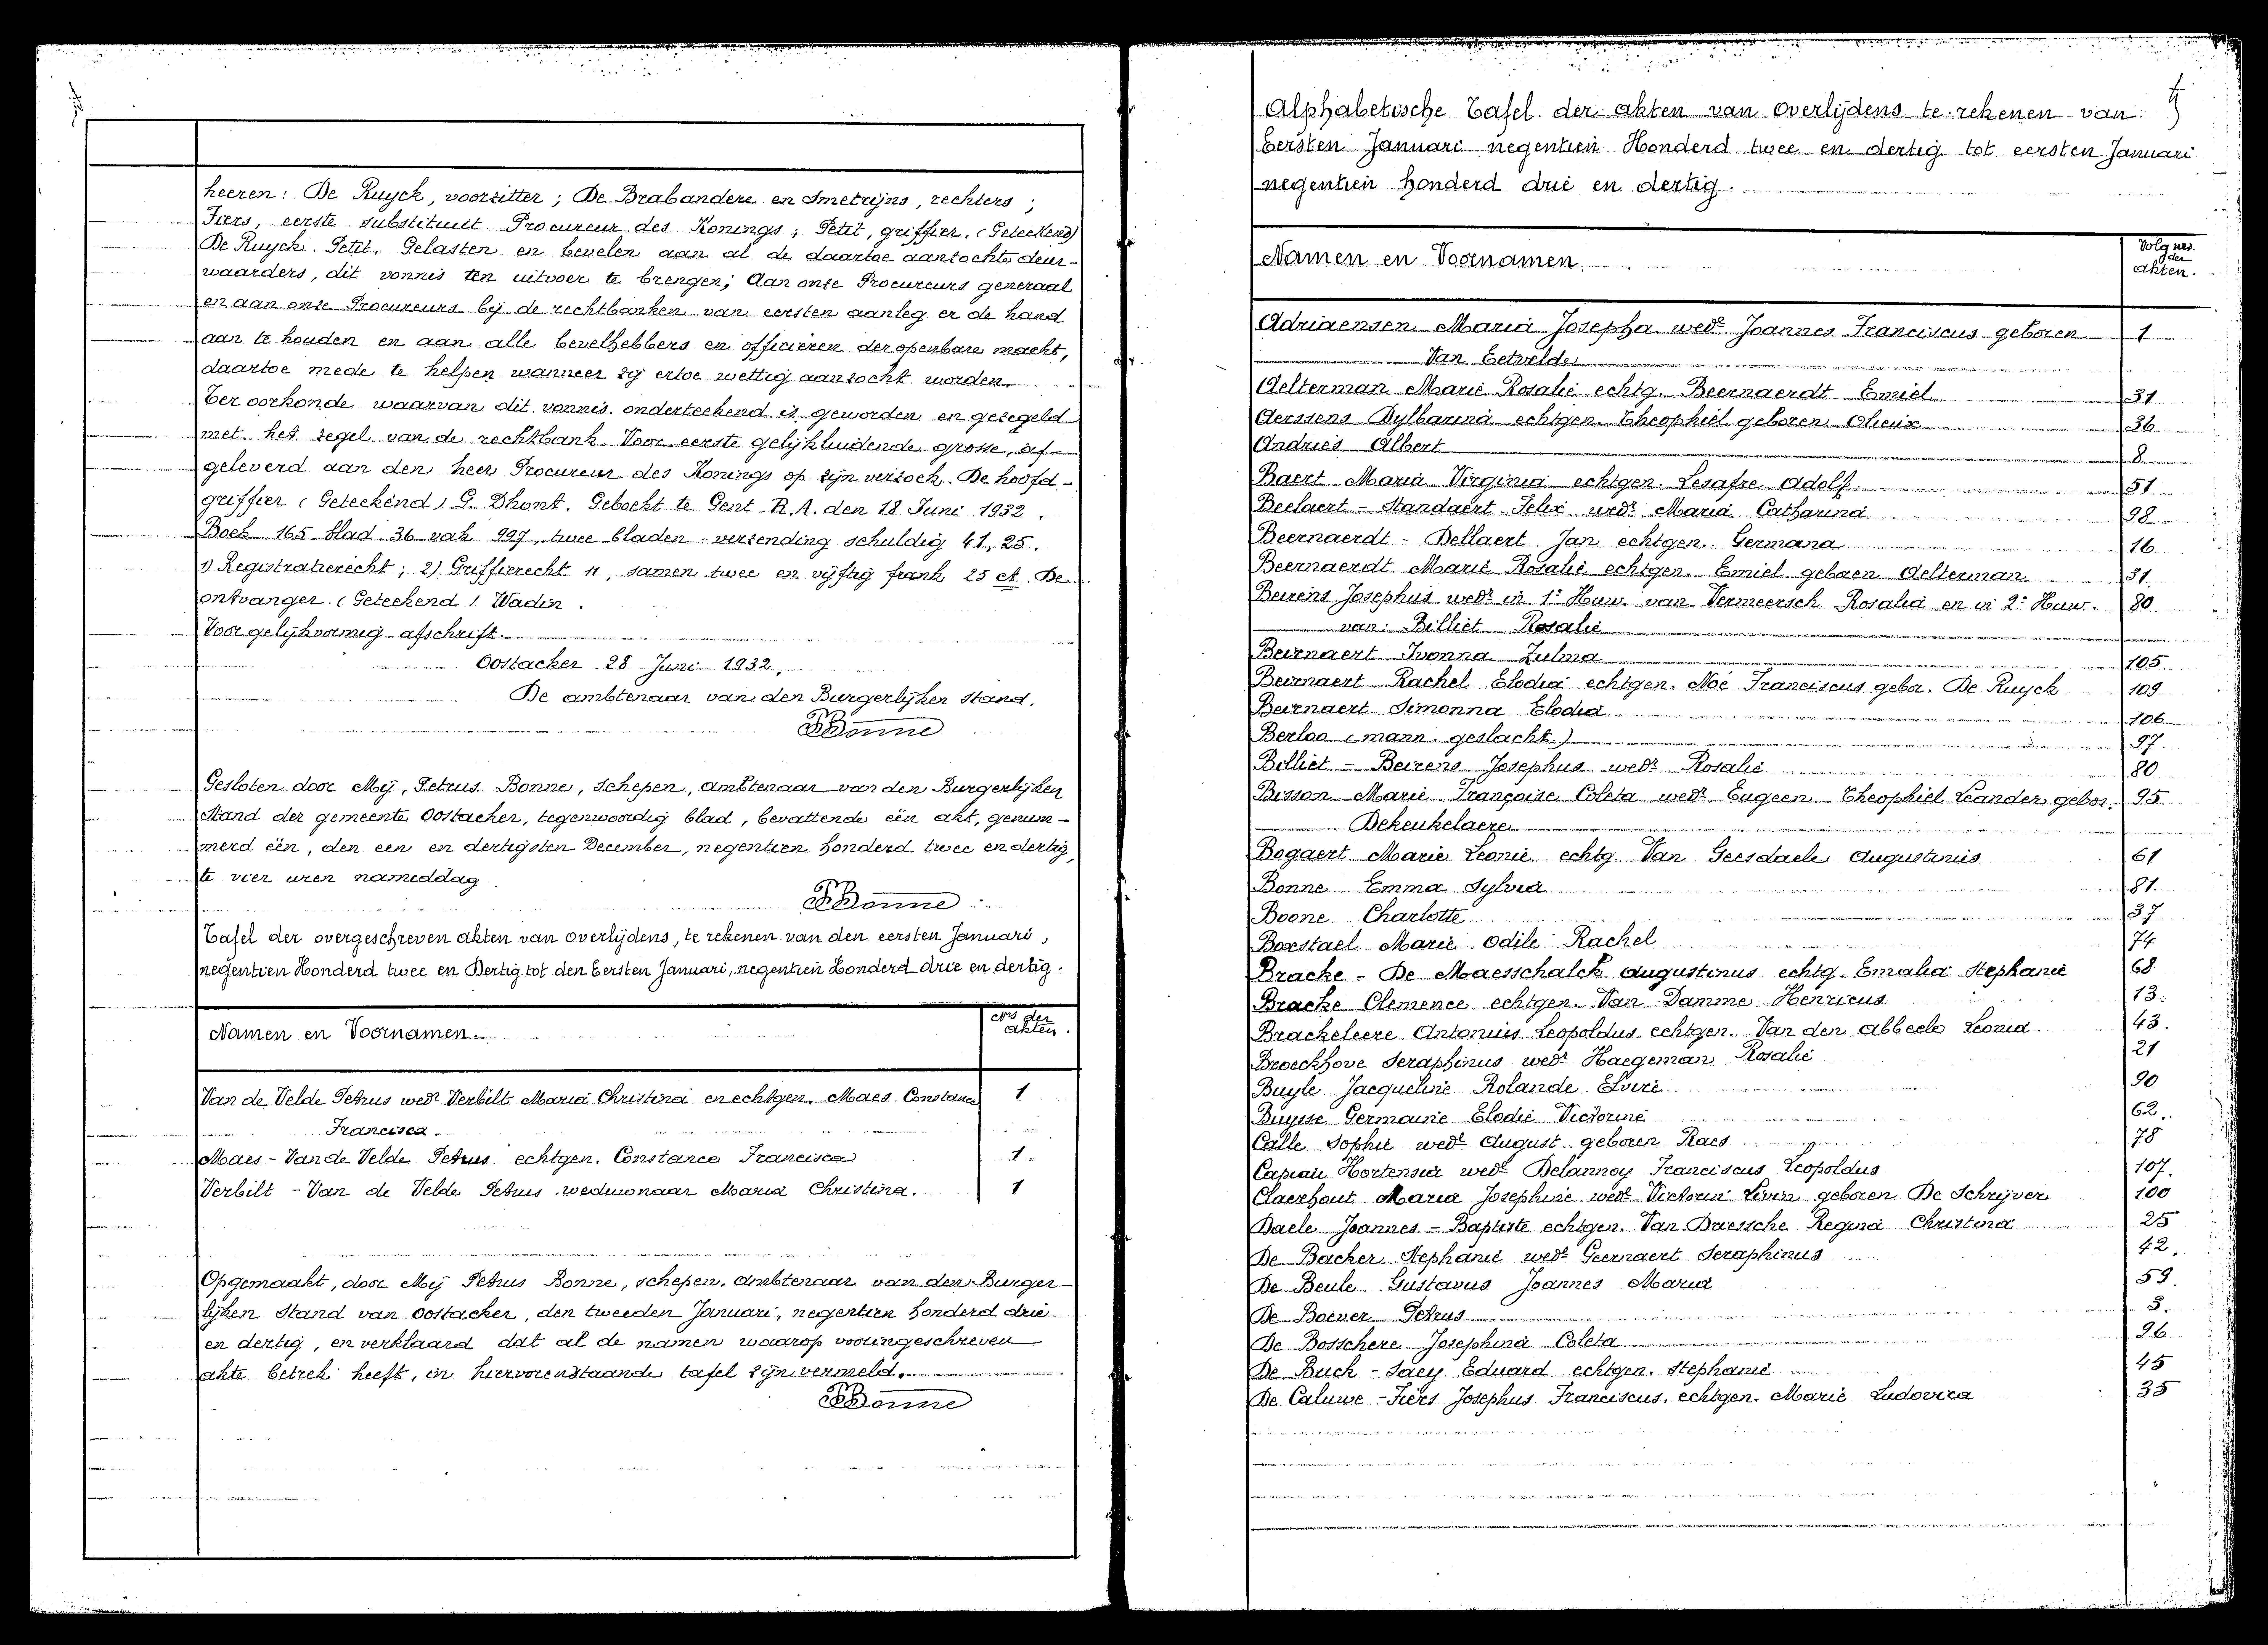 heeren: De Ruyck, voorzitter; De Brabandere en Smetrijns, rechters;
Fiers, eerste substituut Procureur des Konings; Petit, griffier. (Geteekend)
De Ruyck. Petit. Gelasten en bevelen aan al de daartoe aanzochte deur-
waarders, dit vonnis ten uitvoer te brengen; Aan onze Procureurs generaal
en aan onze Procureurs bij de rechtbanken van eersten aanleg er de hand
aan te houden en aan alle bevelhebbers en officieren der openbare macht,
daartoe mede te helpen wanneer zij ertoe wettig aanzocht worden.
Ter oorkonde waarvan dit vonnis onderteekend is geworden en gezegeld
met het zegel van de rechtbank. Voor eerste gelijkluidende grosse, af-
geleverd aan den heer Procureur des Konings op zijn verzoek. De hoofd-
griffier (Geteekend) G. Dhont. Geboekt te Gent R.A. den 18 Juni 1932.
Boek 165 blad 36 vak 997, twee bladen - verzending schuldig 41,25.
1) Registratierecht; 2) Griffierecht 11, samen twee en vijftig frank 25 ct. De
ontvanger. (Geteekend) Wadin.
Voor gelijkvormig afschrift.
Oostacker 28 Juni 1932.
De ambtenaar van den Burgerlijken Stand,
PBonne
Gesloten door Mij, Petrus Bonne, Schepen, Ambtenaar van den Burgerlijken
Stand der gemeente Oostacker, tegenwoordig blad, bevattende één akt, genum-
merd één, den een en dertigsten December, negentien honderd twee en dertig,
te vier uren namiddag
PBonne
Tafel der overgeschreven akten van overlijdens, te rekenen van den eersten Januari,
negentien Honderd twee en Dertig tot den Eersten Januari, negentien Honderd drie en dertig.
Namen en Voornamen. Nrs der akten.
Van de Velde Petrus wedr Verbilt Maria Christina en echtgen. Maes Constance 1
Francisca.
Maes - Van de Velde Petrus echtgen. Constance Francisca 1.
Verbilt - Van de Velde Petrus weduwnaar Maria Christina. 1
Opgemaakt, door Mij Petrus Bonne, schepen, ambtenaar van den Burger-
lijken Stand van Oostacker, den tweeden Januari, negentien honderd drie
en dertig, en verklaard dat al de namen waarop vooringeschreven
akte betrek heeft, in hiervorenstaande tafel zijn vermeld.
PBonne
Alphabetische Tafel der akten van overlijdens te rekenen van
Eersten Januari negentien Honderd twee en dertig tot eersten Januari
negentien honderd drie en dertig.
Namen en Voornamen Volg nrs. der akten.
Adriaensen Maria Josepha wede Joannes Franciscus geboren 1
Van Eetvelde
Aelterman Marie Rosalie echtg. Beernaerdt Emiel 31
Aerssens Bylbarina echtgen. Theophiel geboren Olieux 36
Andries Albert 8
Baert Maria Virginia echtgen. Lesafre Adolf. 51
Beelaert - Standaert Felix wedr Maria Catharina 98
Beernaerdt - Dellaert Jan echtgen. Germana 16
Beernaerdt Marie Rosalie echtgen. Emiel geboren Aelterman 31
Beirens Josephus wedr in 1e Huw. van Vermeersch Rosalia en in 2e Huw. 80
van: Billiet Rosalie
Beirnaert Ivonna Zulma 105
Beirnaert Rachel Elodia echtgen. Noé Franciscus gebor. De Ruyck 109
Beirnaert Simonna Elodia 106
Berloo (mann. geslacht.) 97.
Billiet - Beirens Josephus wedr Rosalie 80
Bisson Marie Françoise Coleta wede Eugeen Theophiel Leander gebor. 95
Dekeukelaere
Bogaert Marie Leonie echtg. Van Geesdaele Augustinus 61
Bonne Emma Sylvia 81.
Boone Charlotte 37
Borstael Marie Odile Rachel 74
Bracke - De Maesschalck Augustinus echtg. Emalia Stephanie 68.
Bracke Clemence echtgen. Van Damme Henricus 13.
Brackeleere Antonius Leopoldus echtgen. Van den Abbeele Leonia 43.
Broeckhove Seraphinus wedr Haegeman Rosalie 21
Buyle Jacqueline Rolande Elvire 90
Buysse Germaine Elodie Victorine 62.
Calle Sophie wede August geboren Raes 78
Capiau Hortensia wede Delannoy Franciscus Leopoldus 107.
Claerhout Maria Josephine wede Victorin Livin geboren De Schrijver 100
Daele Joannes - Baptiste echtgen. Van Driessche Regina Christina 25
De Backer Stephanie wede Geernaert Seraphinus 42.
De Beule Gustavus Joannes Maria 59.
De Boever Petrus 3.
De Bosschere Josephina Coleta 96
De Buck - Saey Eduard echtgen. Stephanie 45
De Caluwe - Fiers Josephus Franciscus, echtgen. Marie Ludovica 35